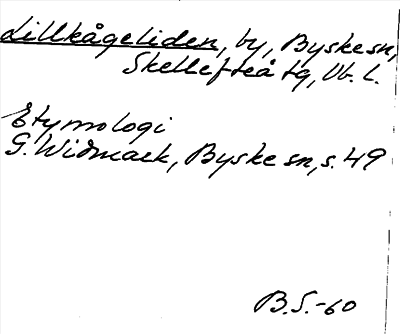 Lillkågeliden, by, Byske sn,
Skellefteå tg, Vb. l.
Etymologi
G. Widmark, Byske sn, s. 49
B.S.-60